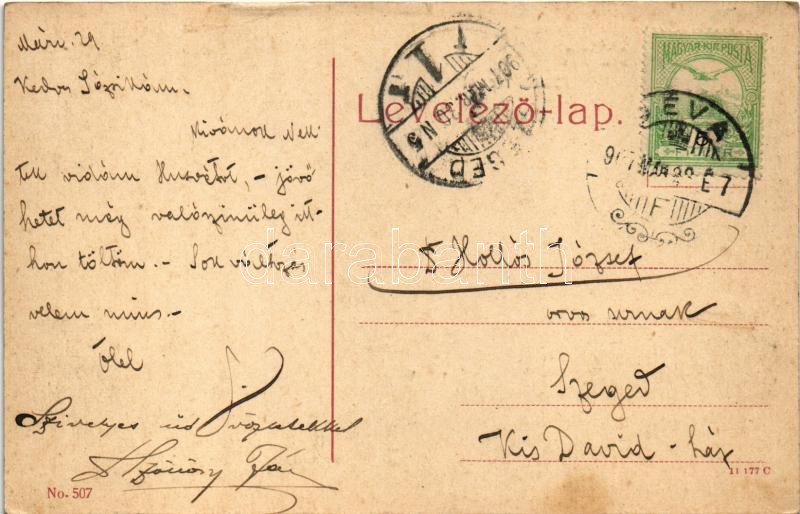 Márc. 29
Kedves Józsikám.
Kivánok Nek-
tek vidám Husvétot, - jövő
hetet még valószinüleg itt-
hon töltöm. - Sok változás
velem nincs. -
Ölel
Szivelyes üdvözletekkel
No. 507
Levelező-lap.
MAGYAR KIR. POSTA
SZEGED
907 MÁR 30 N5
1
DÉVA
907 MÁR 29 E7
F
Dr Hollós József
orvos urnak
Szeged
Kis Dávid - ház
11 177 C
darabanth